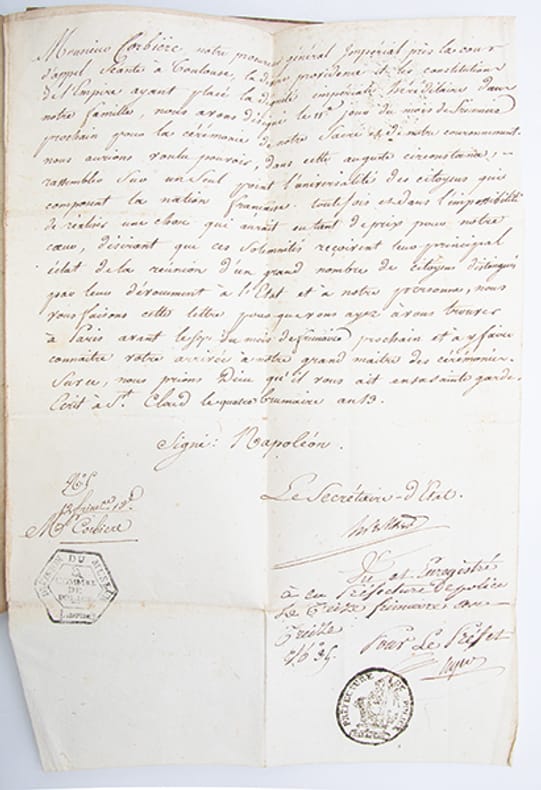 Monsieur Corbière, notre procureur général Impérial près la cour
d'appel Séante à Toulouse, la divine providence et les constitutions
de l'Empire ayant placé la dignité impériale héréditaire dans
notre famille, nous avons désigné le 11e jour du mois de frimaire
prochain pour la cérémonie de notre Sacre et de notre couronnement.
nous aurions voulu pouvoir, dans cette auguste circonstance,
rassembler Sur un Seul point l'universalité des citoyens qui
composent la nation française. toutefois et dans l'impossibilité
de réaliser une chose qui aurait eu tant de prix pour notre
cœur, désirant que ces Solemnités reçoivent leur principal
éclat de la reunion d'un grand nombre de citoyens distingués
par leur dévouement à l'Etat et à notre personne, nous
vous faisons cette lettre pour que vous ayez à vous trouver
à Paris avant le du mois de frimaire prochain et à y faire
connaitre votre arrivée à notre grand maitre des cérémonies.
Sur ce, nous prions Dieu qu'il vous ait en sa sainte garde.
Ecrit à St. Cloud le quatre brumaire an 13.
Signé: Napoléon.
Le Secrétaire-d'Etat.
Mr Corbiere
DIVISION DU
DE
POLICE
Vu et Enregistré
à la Préfecture de police
Le Treize frimaire an
Treize
Pour Le Préfet
PREFECTURE DE POLICE